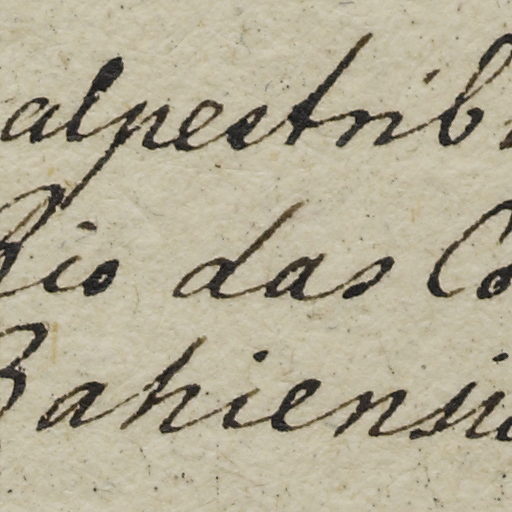 alpestrib
Rio das Co
Bahiensi